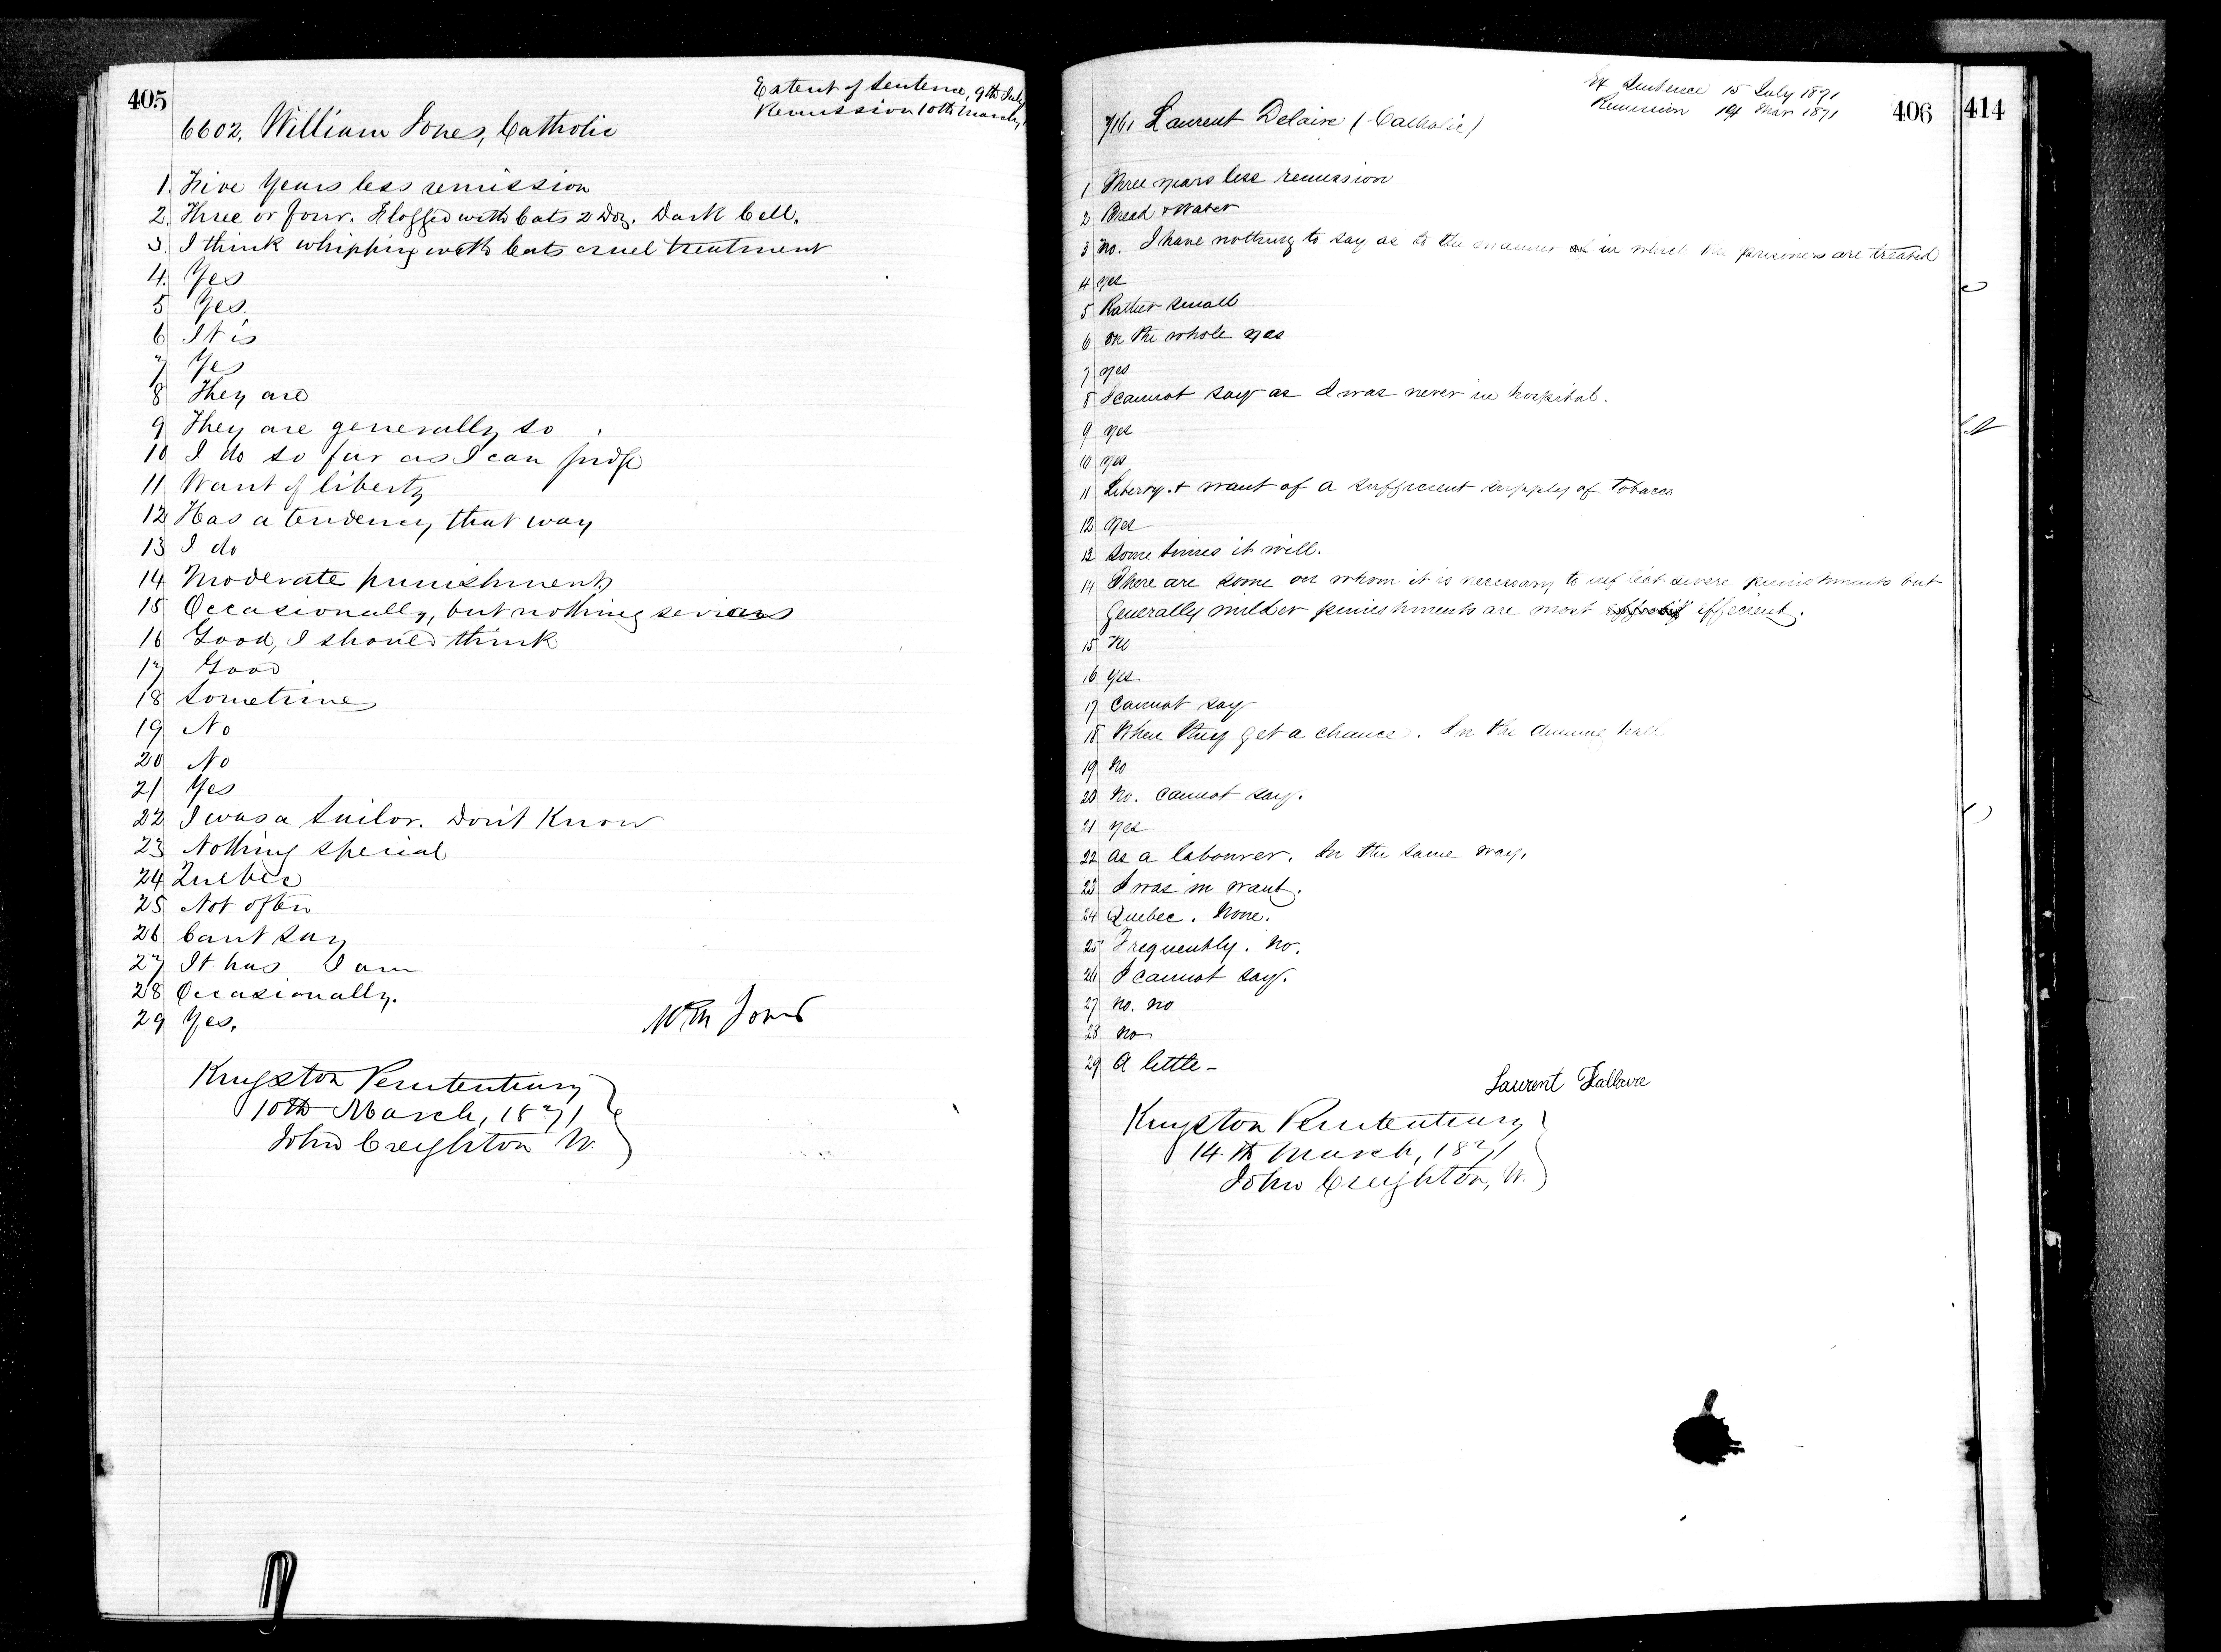 405
Extent of Sentence, 9th July
Remission 10th March,
6602, William Jones, Catholic
1. Five Years less remission
2. Three or four. Flogged with Cats 2 Doz. Dark Cell.
3. I think whipping with Cats cruel treatment
4. Yes
5 Yes.
6 It is
7 Yes
8 They are
9 They are generally so
10 I do so far as I can judge
11 Want of liberty
12 Has a tendency that way
13 I do
14 Moderate punishments
15 Occasionally, but nothing serious
16 Good, I should think
17 Good
18 Sometimes
19 No
20 No
21 Yes
22 I was a Sailor. Don't Know
23 Nothing special
24 Quebec
25 Not often
26 Cant say
27 It has I am
28 Occasionally.
29 Yes.
Wm Jones
Kingston Penitentiary
10th March, 1871
John Creighton W.
406
414
Ex Sentence 15 July 1871
Remission 14 Mar 1871
7161 Laurent Delaire (Catholic)
1 Three years less remission
2 Bread & Water
3 No. I have nothing to say as to the manner in which the prisoners are treated
4 yes
5 Rather small
6 on the whole yes
7 yes
8 I cannot say as I was never in hospital.
9 yes
10 yes
11 Liberty & want of a sufficient supply of Tobacco
12 yes
13 some times it will.
14 There are some on whom it is necessary to inflict severe punishments but
generally milder punishments are most efficient.
15 No
16 yes.
17 Cannot say
18 When they get a chance. In the dining hall
19 No
20 No. cannot say.
21 yes
22 as a labourer. In the same way.
23 I was in want.
24 Quebec. None.
25 Frequently. No.
26 I cannot say.
27 no. no
28 no
29 A little -
Laurent Dallaire
Kingston Penitentiary
14th March, 1871
John Creighton, W.